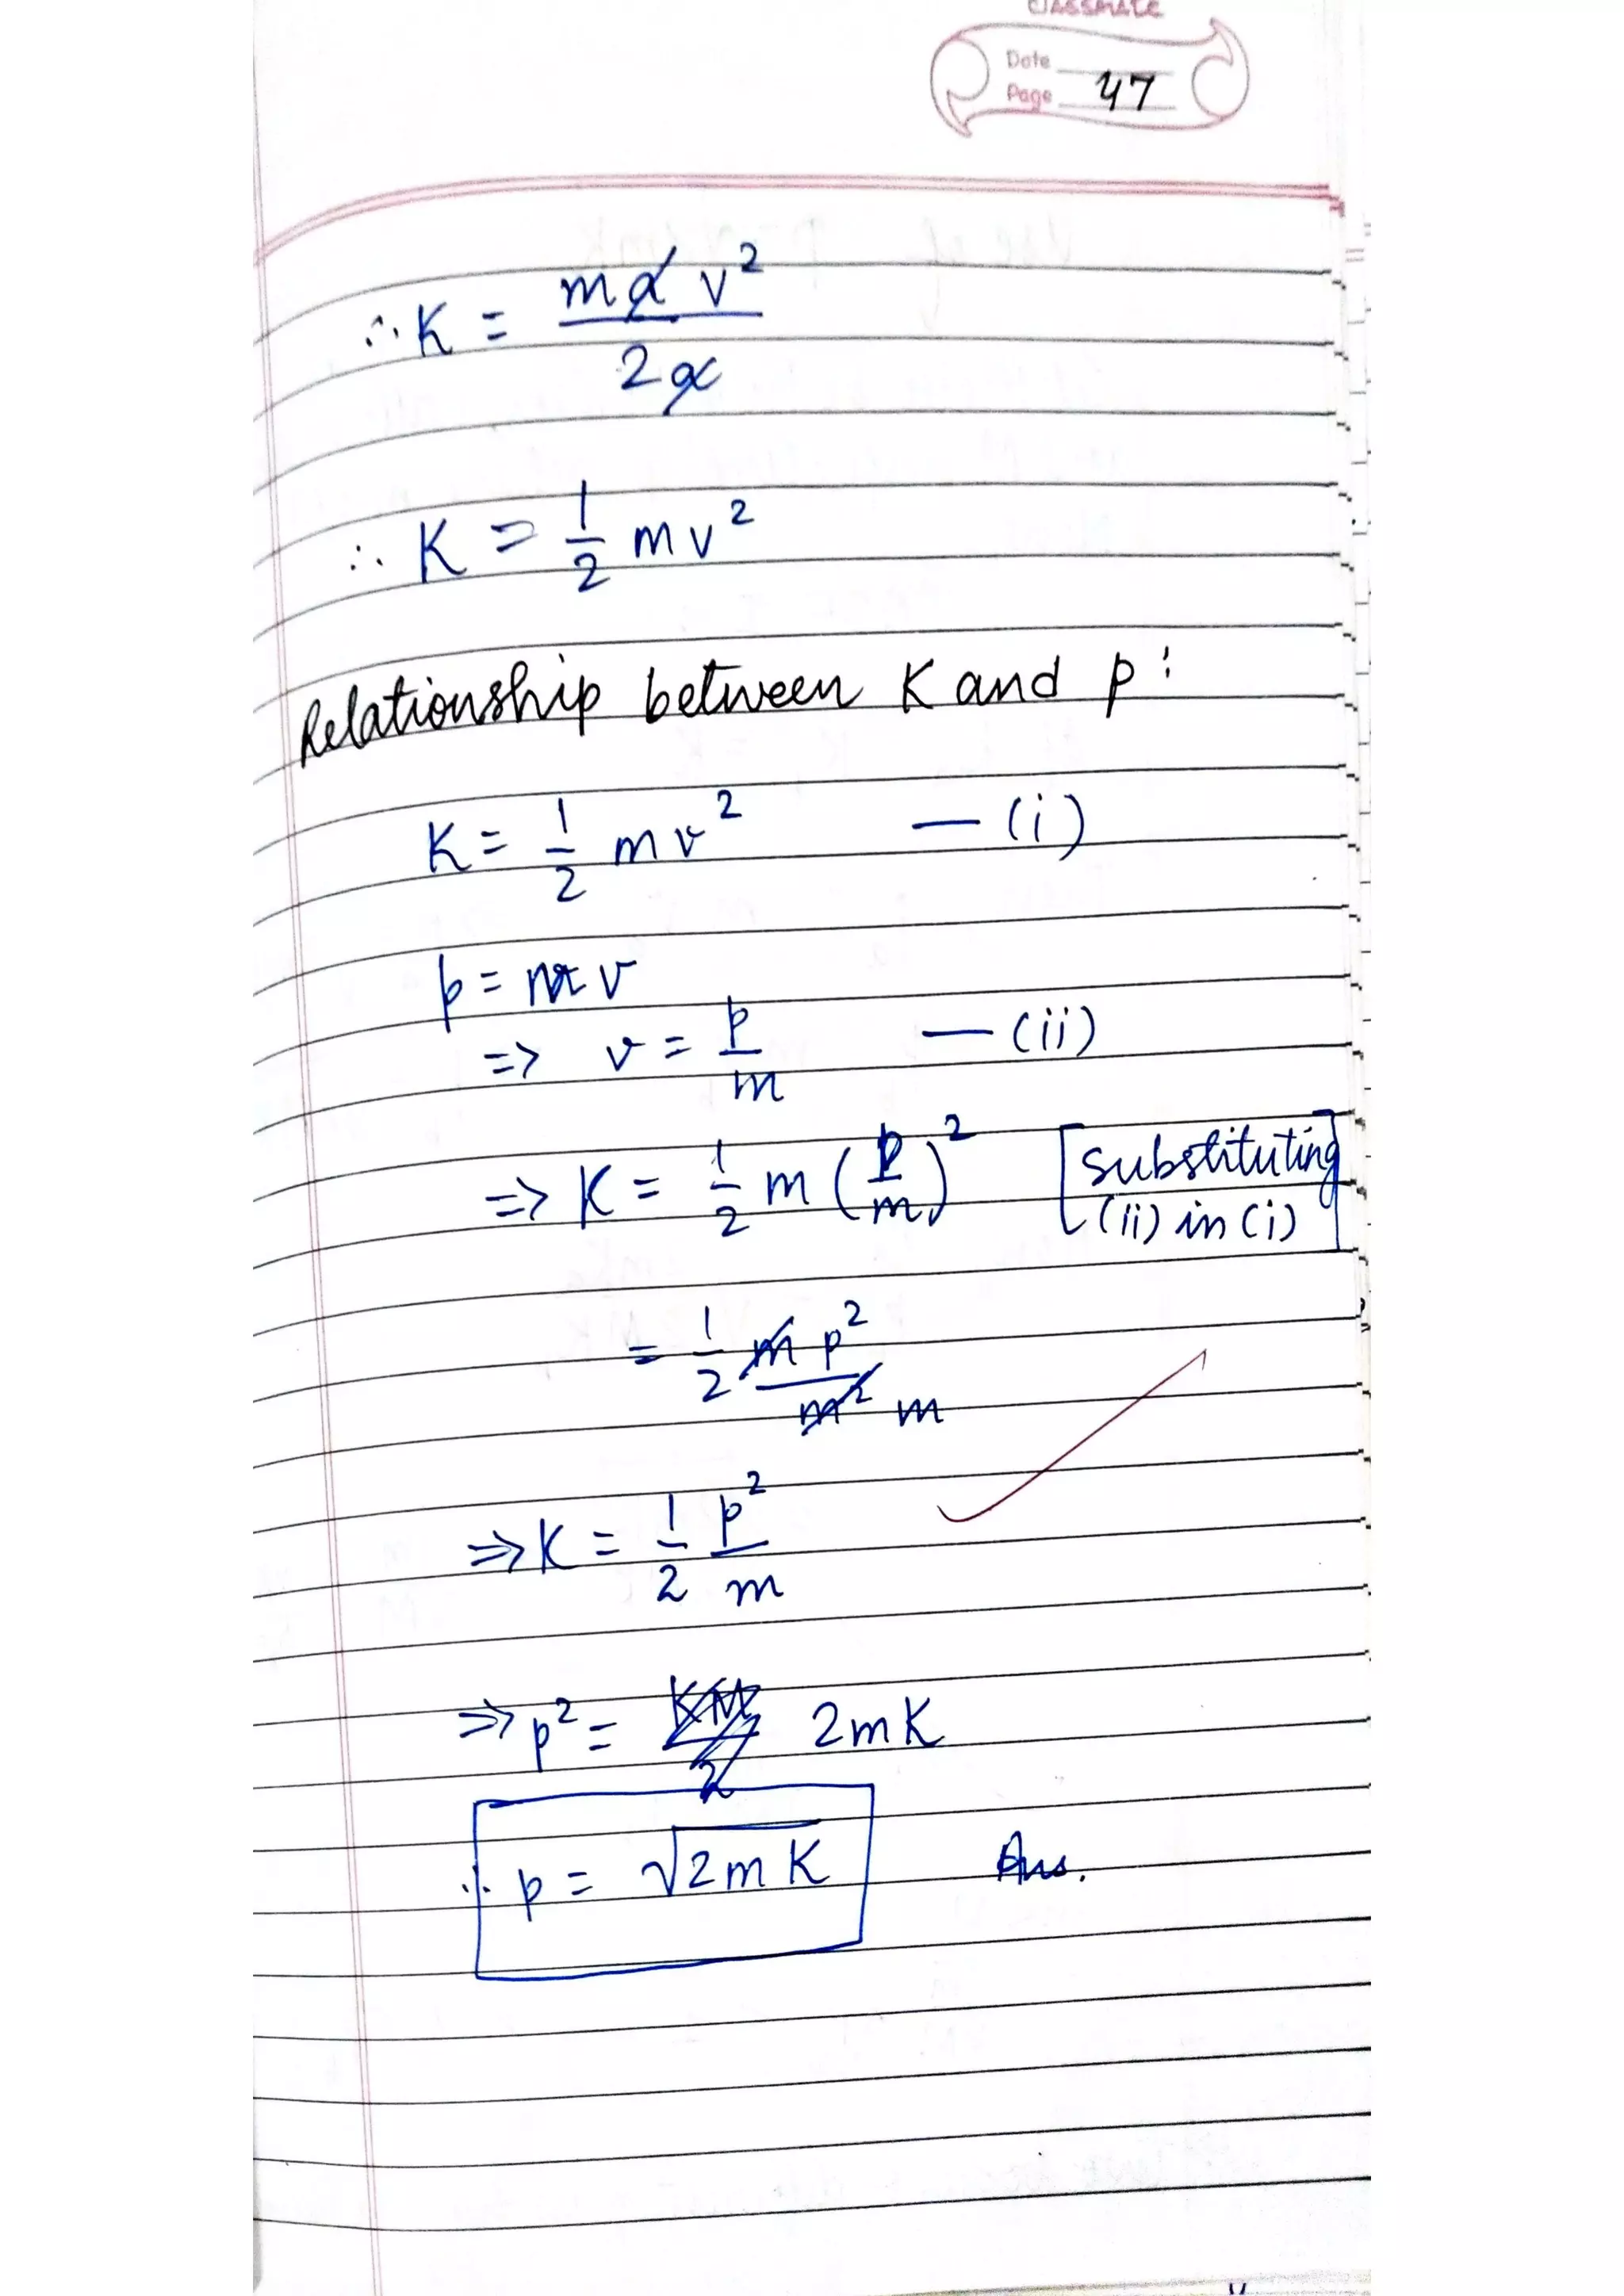 classmate
Date
Page 47
∴ K = ma v² / 2a
∴ K = 1/2 mv²
Relationship between K and p :
K = 1/2 mv² — (i)
p = mv
=> v = p/m — (ii)
=> K = 1/2 m (p/m)² [substituting
(ii) in (i)]
= 1/2 m p² / m² m
=> K = 1/2 p²/m
=> p² = KM/2 2mK
∴ p = √2mK Ans.